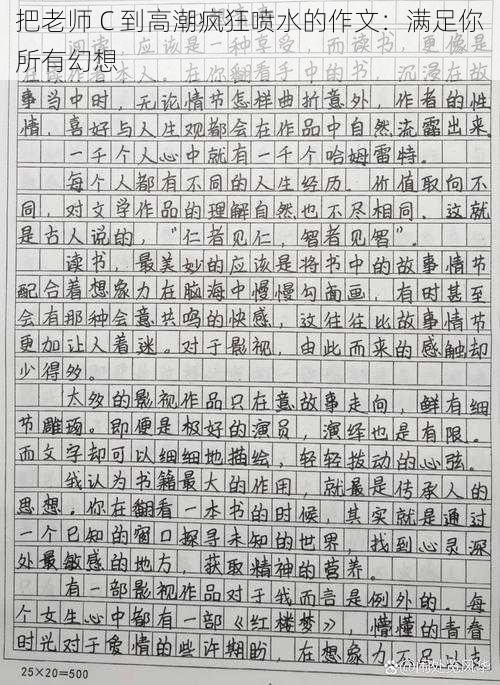 把老师 C 到高潮疯狂喷水的作文：满足你
所有幻想
阅读，应该是一种享受，而读书，更像是
作者本人。在你翻看手中的书，沉浸在故
事当中时，无论情节怎样曲折意外，作者的性
情，喜好与人生观都会在作品中自然流露出来。
一千个人心中就有一千个哈姆雷特。
每个人都有不同的人生经历。价值取向不
同，对文学作品的理解自然也不尽相同。这就
是古人说的，“仁者见仁，智者见智”。
读书，最美妙的应该是将书中的故事情节
配合着想象力在脑海中慢慢勾画画，有时甚至
会有那种会意共鸣的快感，这往往比故事情节
更加让人着迷。对于影视，由此而来的感触却
少得多。
大多的影视作品只在意故事走向，鲜有细
节雕琢。即便是极好的演员，演绎也是有限。
而文字却可以细细地描绘，轻轻拨动的心弦。
我认为书籍最大的作用，就最是传承人的
思想。你在翻看一本书的时候，其实就是通过
一个已知的窗口探寻未知的世界，找到心灵深
处最敏感的地方，获取精神的营养。
有一部影视作品对于我而言是例外的。每
个女生心中都有一部《红楼梦》，懵懂的青春
时光对于爱情的些许期盼，在想象力不足以支
25×20=500